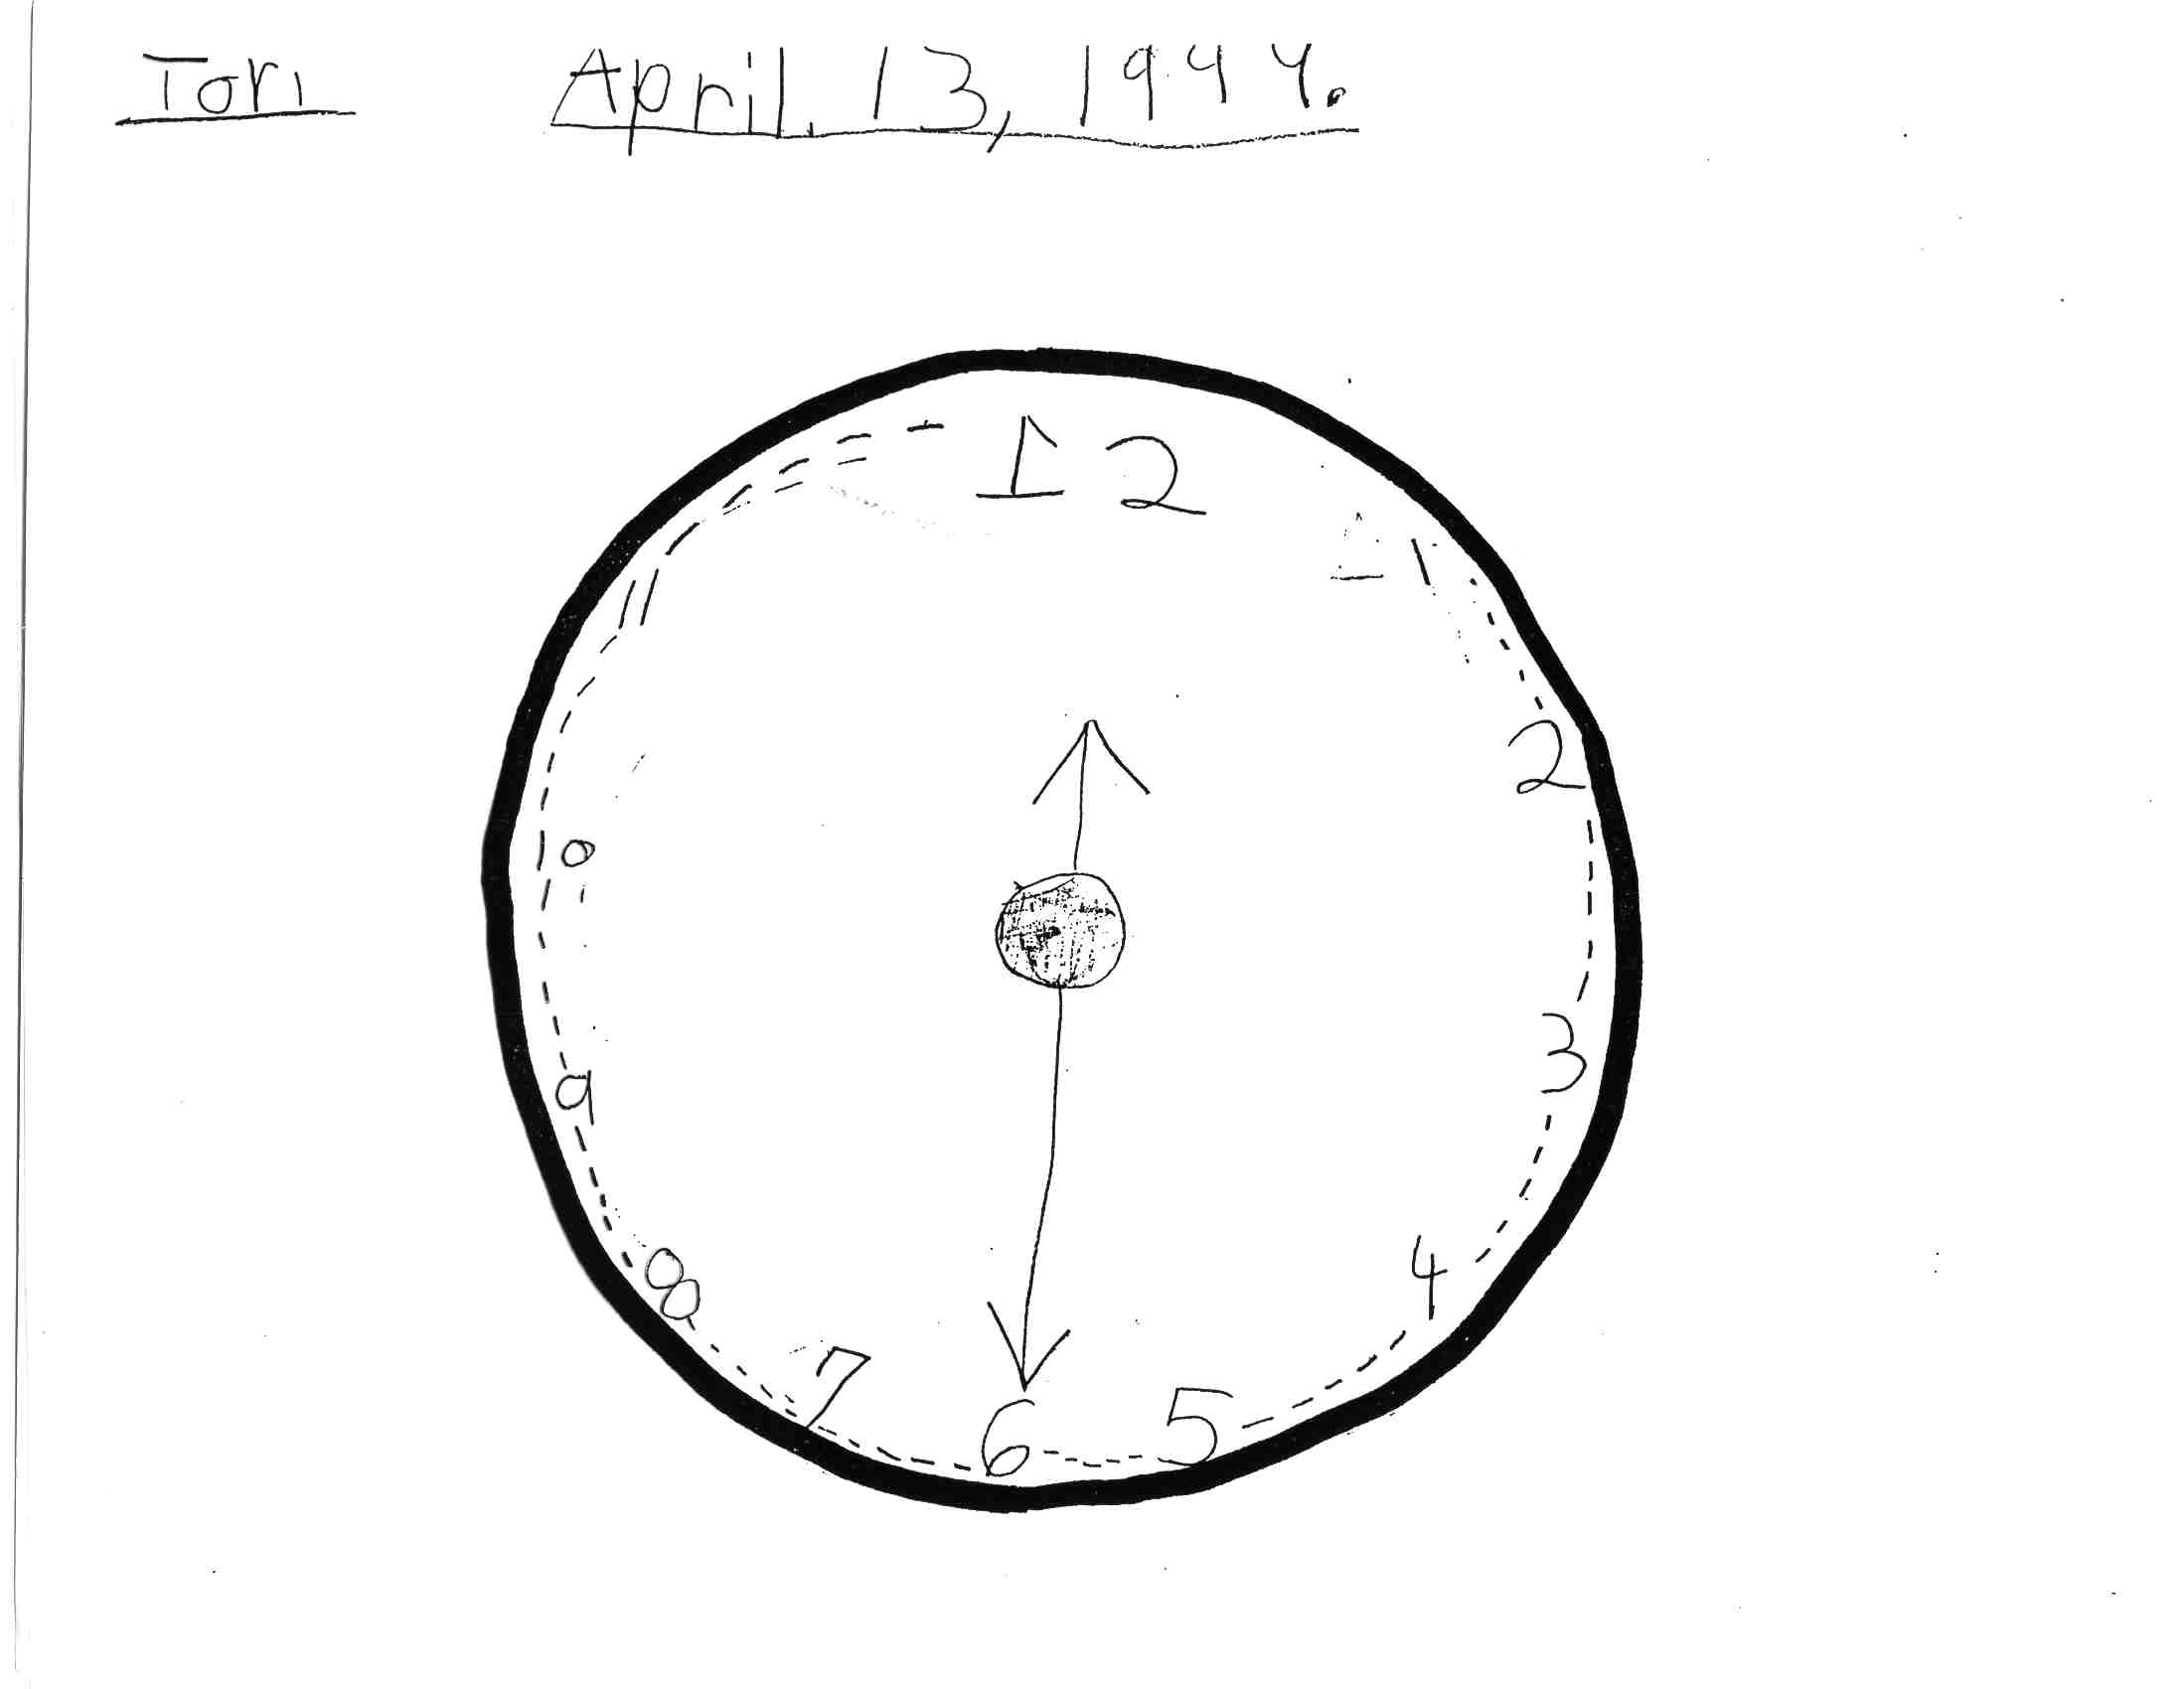 Tori April. 13, 1994.
12
1
2
3
4
5
6
7
8
9
10
11